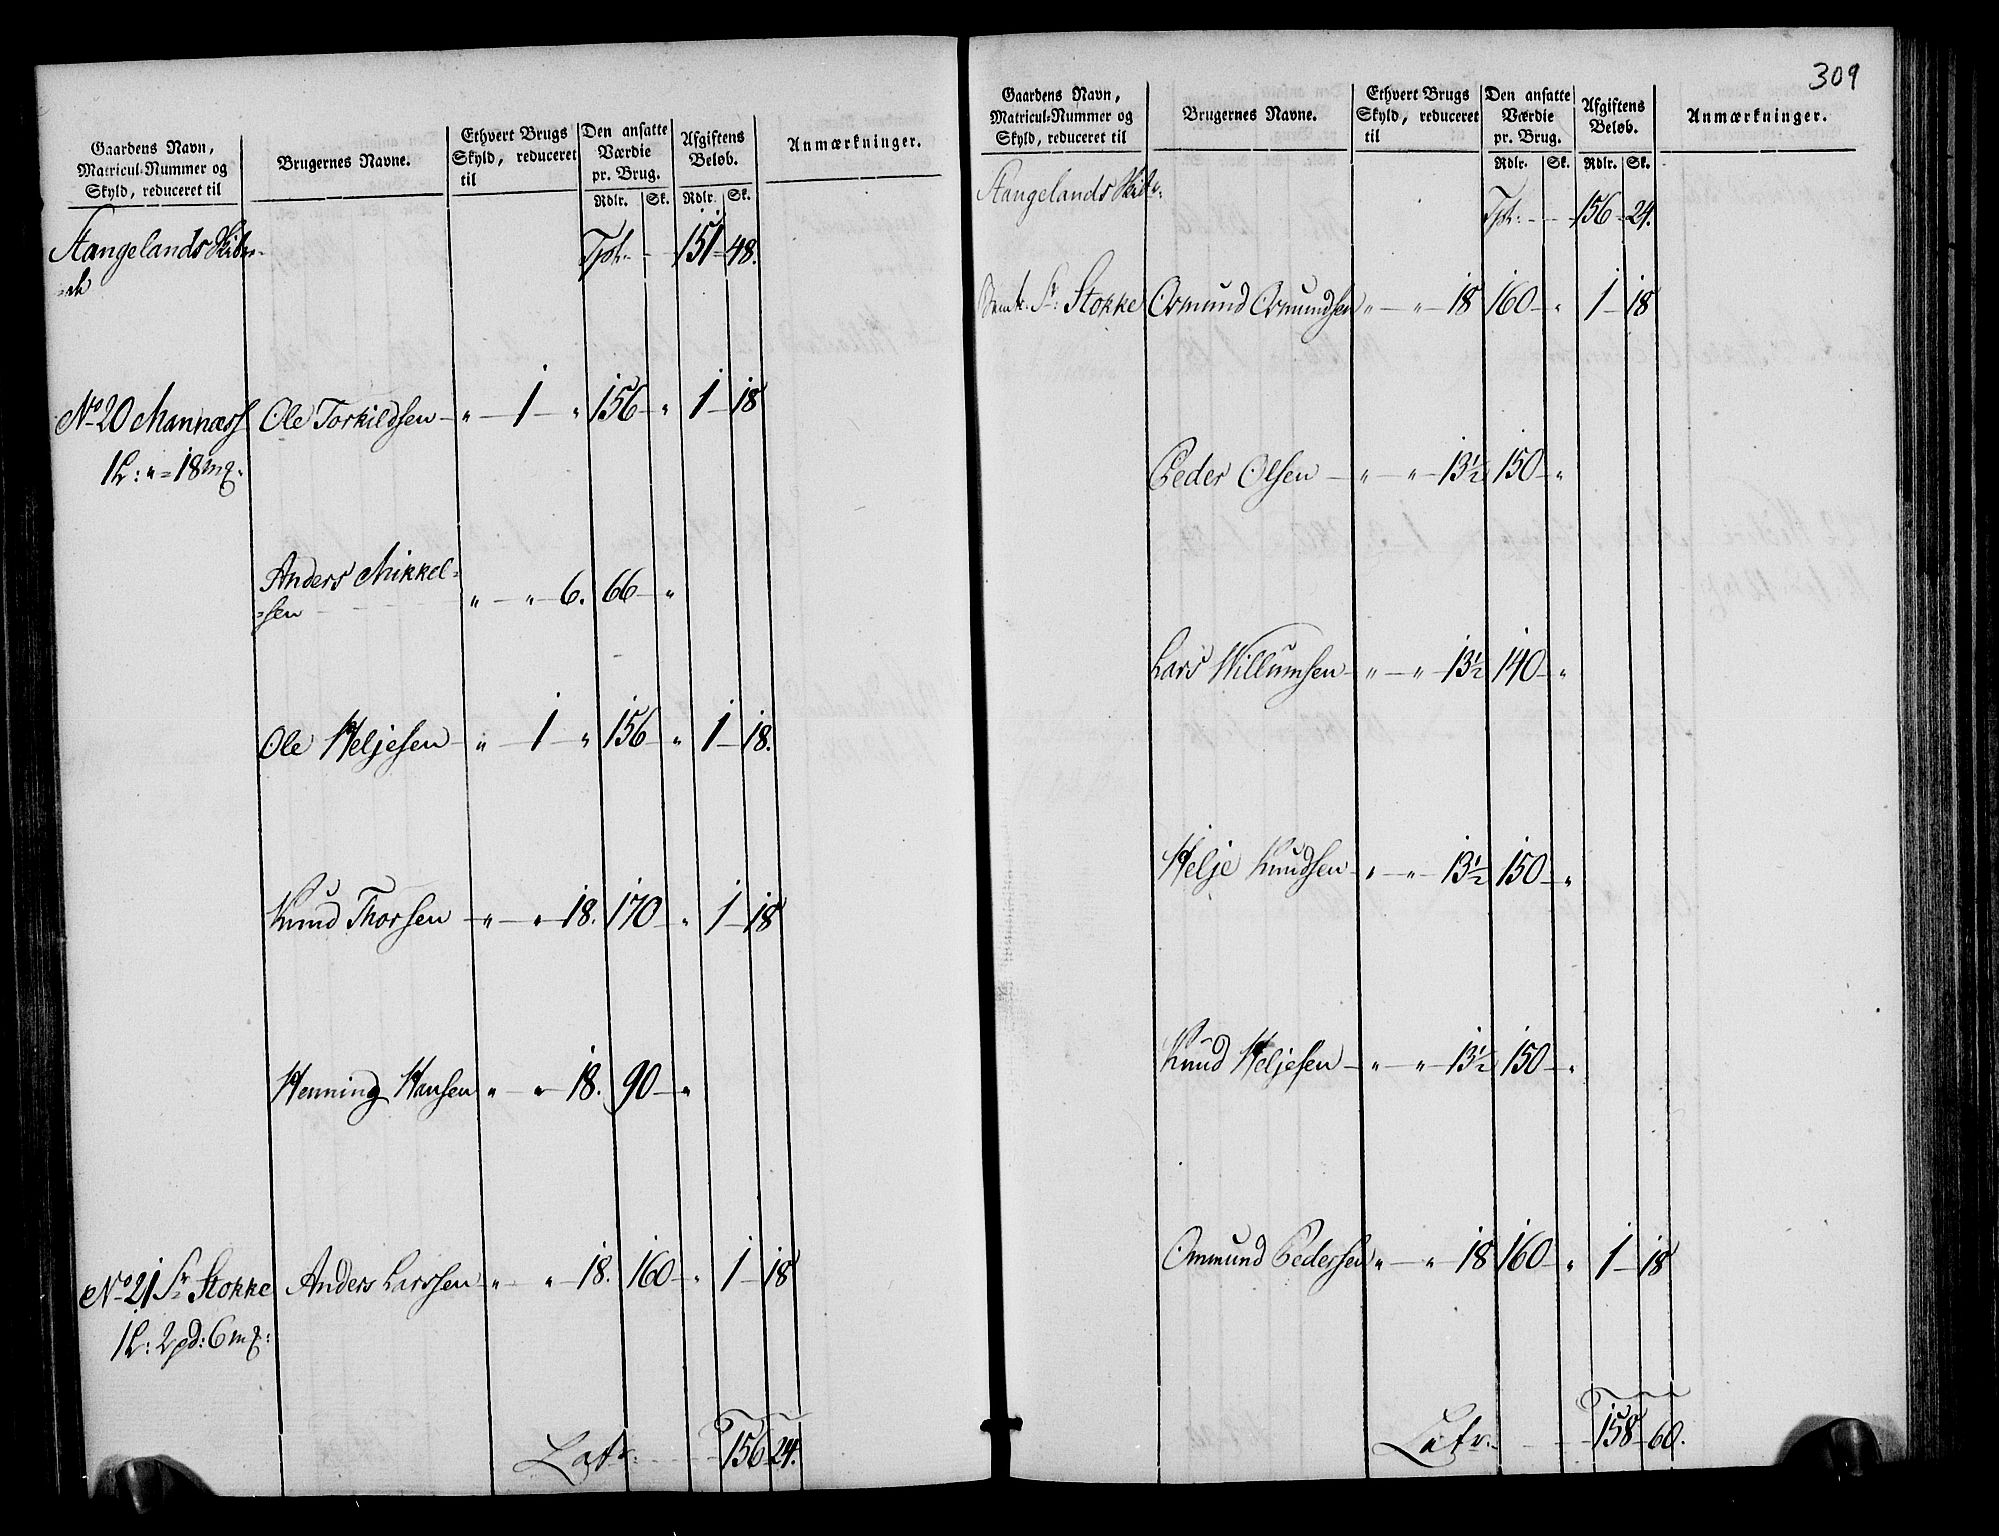 Gaardens Navn, Matricul-Nummer og Skyld, reduceret til
Brugernes Navne.
Ethvert Brugs Skyld, reduceret til
Den ansatte Værdie pr. Brug.
Afgiftens Beløb.
Anmærkninger.
Rdlr. Sk. Rdlr. Sk.
Stangelands Skibr-
=de
Tpt: 151 48.
No 20 Mannæss Ole Torkildsen " 1 " 156 " 1 18
1 L: " = 18 mꝝ.
Anders Mikkel=
=sen " " 6. 66 "
Ole Heljesen " 1 " 156 " 1 18.
Knud Thorsen " " 18. 170 " 1 18
Henning Hansen " " 18. 90 "
No 21 Sr Stokke Anders Larssen " " 18. 160 " 1 18
1 L: 2 pd: 6 mꝝ:
Latr: 156 24.
309
Gaardens Navn, Matricul-Nummer og Skyld, reduceret til
Brugernes Navne.
Ethvert Brugs Skyld, reduceret til
Den ansatte Værdie pr. Brug.
Afgiftens Beløb.
Anmærkninger.
Rdlr. Sk. Rdlr. Sk.
Stangelands Skibr:
Tpt: 156 24.
Sr: Stokke Osmund Osmundsen " " 18 160 " 1 18
Peder Olsen " " 13½ 150 "
Lars Willumsen " " 13½ 140 "
Helje Knudsen " " 13½ 150 "
Knud Heljesen " " 13½ 150 "
Ommund Pedersen " " 18 160 " 1 18
Latr: 158 60.